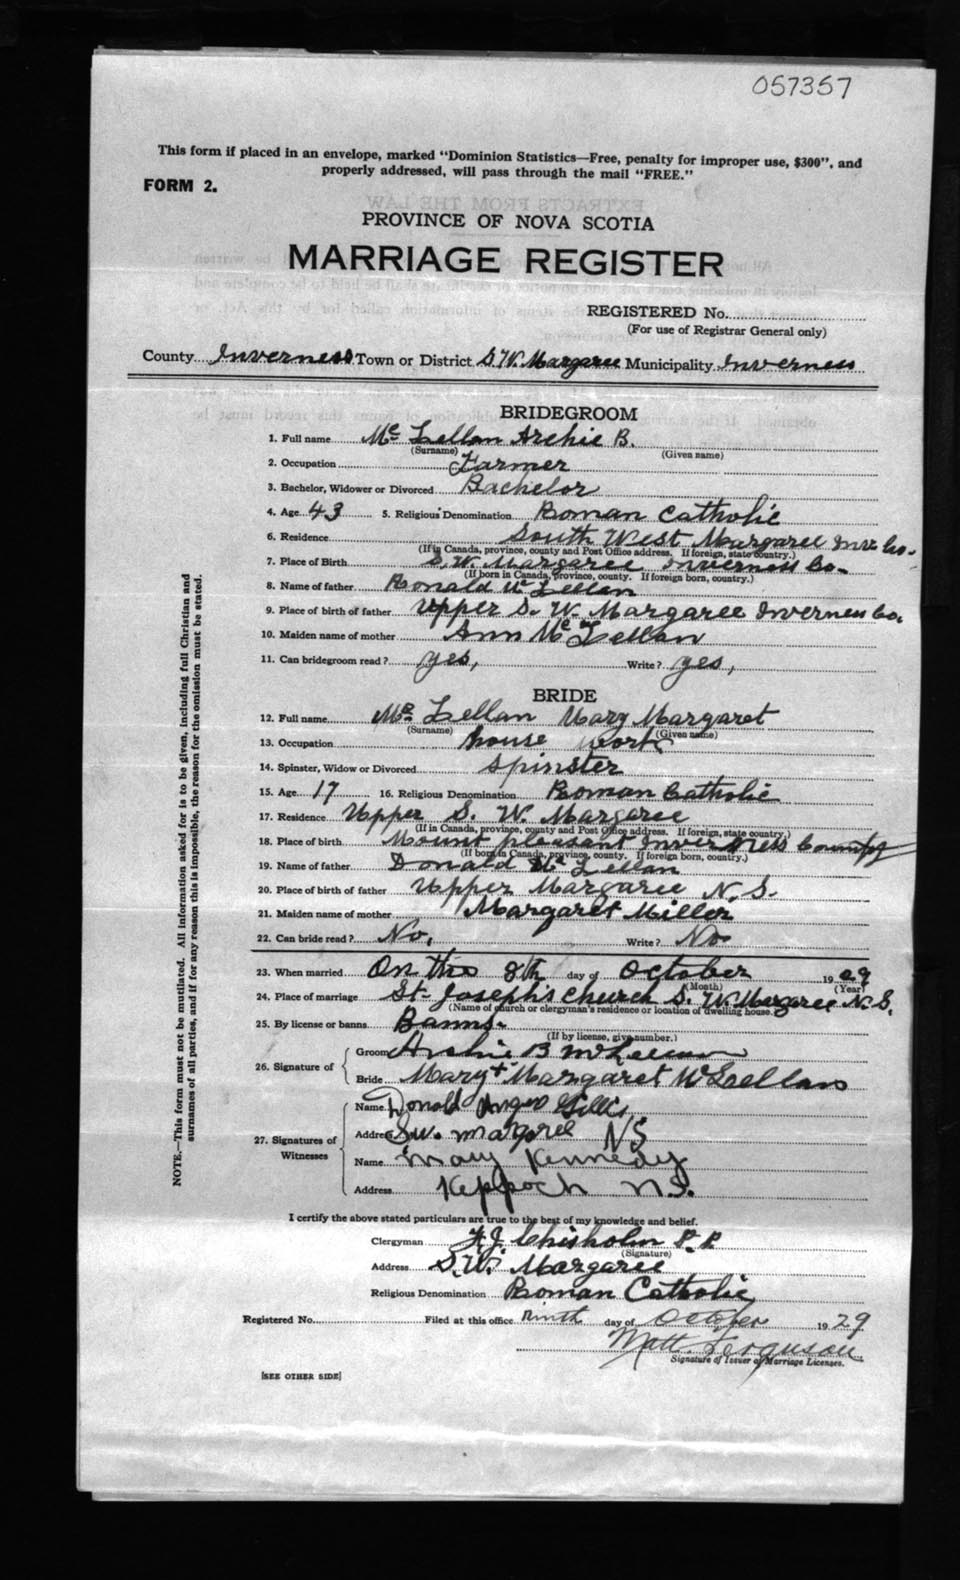 057357
This form if placed in an envelope, marked "Dominion Statistics—Free, penalty for improper use, $300", and
properly addressed, will pass through the mail "FREE."
FORM 2.
PROVINCE OF NOVA SCOTIA
MARRIAGE REGISTER
REGISTERED No.
(For use of Registrar General only)
County Inverness Town or District S.W. Margaree Municipality Inverness
BRIDEGROOM
1. Full name Mc Lellan Archie B.
(Surname) (Given name)
2. Occupation Farmer
3. Bachelor, Widower or Divorced Bachelor
4. Age 43 5. Religious Denomination Roman Catholic
6. Residence South West Margaree Inv. Co.
(If in Canada, province, county and Post Office address. If foreign, state country.)
7. Place of Birth S.W. Margaree Inverness Co.
(If born in Canada, province, county. If foreign born, country.)
8. Name of father Ronald Mc Lellan
9. Place of birth of father Upper S. W. Margaree Inverness Co.
10. Maiden name of mother Ann Mc Lellan
11. Can bridegroom read? yes, Write? yes,
BRIDE
12. Full name Mc Lellan Mary Margaret
(Surname) (Given name)
13. Occupation house work
14. Spinster, Widow or Divorced spinster
15. Age 17 16. Religious Denomination Roman Catholic
17. Residence Upper S. W. Margaree
(If in Canada, province, county and Post Office address. If foreign, state country.)
18. Place of birth Mount pleasant Inverness County
(If born in Canada, province, county. If foreign born, country.)
19. Name of father Donald Mc Lellan
20. Place of birth of father Upper Margaree N. S.
21. Maiden name of mother Margaret Miller
22. Can bride read? No, Write? No
23. When married On the 8th day of October 1929
(Month) (Year)
24. Place of marriage St. Joseph's Church S. W. Margaree N. S.
(Name of church or clergyman's residence or location of dwelling house.)
25. By license or banns Banns.
(If by license, give number.)
26. Signature of
Groom Archie B McLellan
Bride Mary + Margaret McLellan
27. Signatures of Witnesses
Name Donald Angus Gillis
Address Sw. Margree NS
Name Mary Kennedy
Address Keppoch N.S.
I certify the above stated particulars are true to the best of my knowledge and belief.
Clergyman Chisholm P. P.
(Signature)
Address S.W. Margaree
Religious Denomination Roman Catholic
Registered No. Filed at this office Ninth day of October 1929
Matt. Ferguson
Signature of Issuer of Marriage Licenses.
[SEE OTHER SIDE]
NOTE.—This form must not be mutilated. All information asked for is to be given, including full Christian and
surnames of all parties, and if for any reason this is impossible, the reason for the omission must be stated.